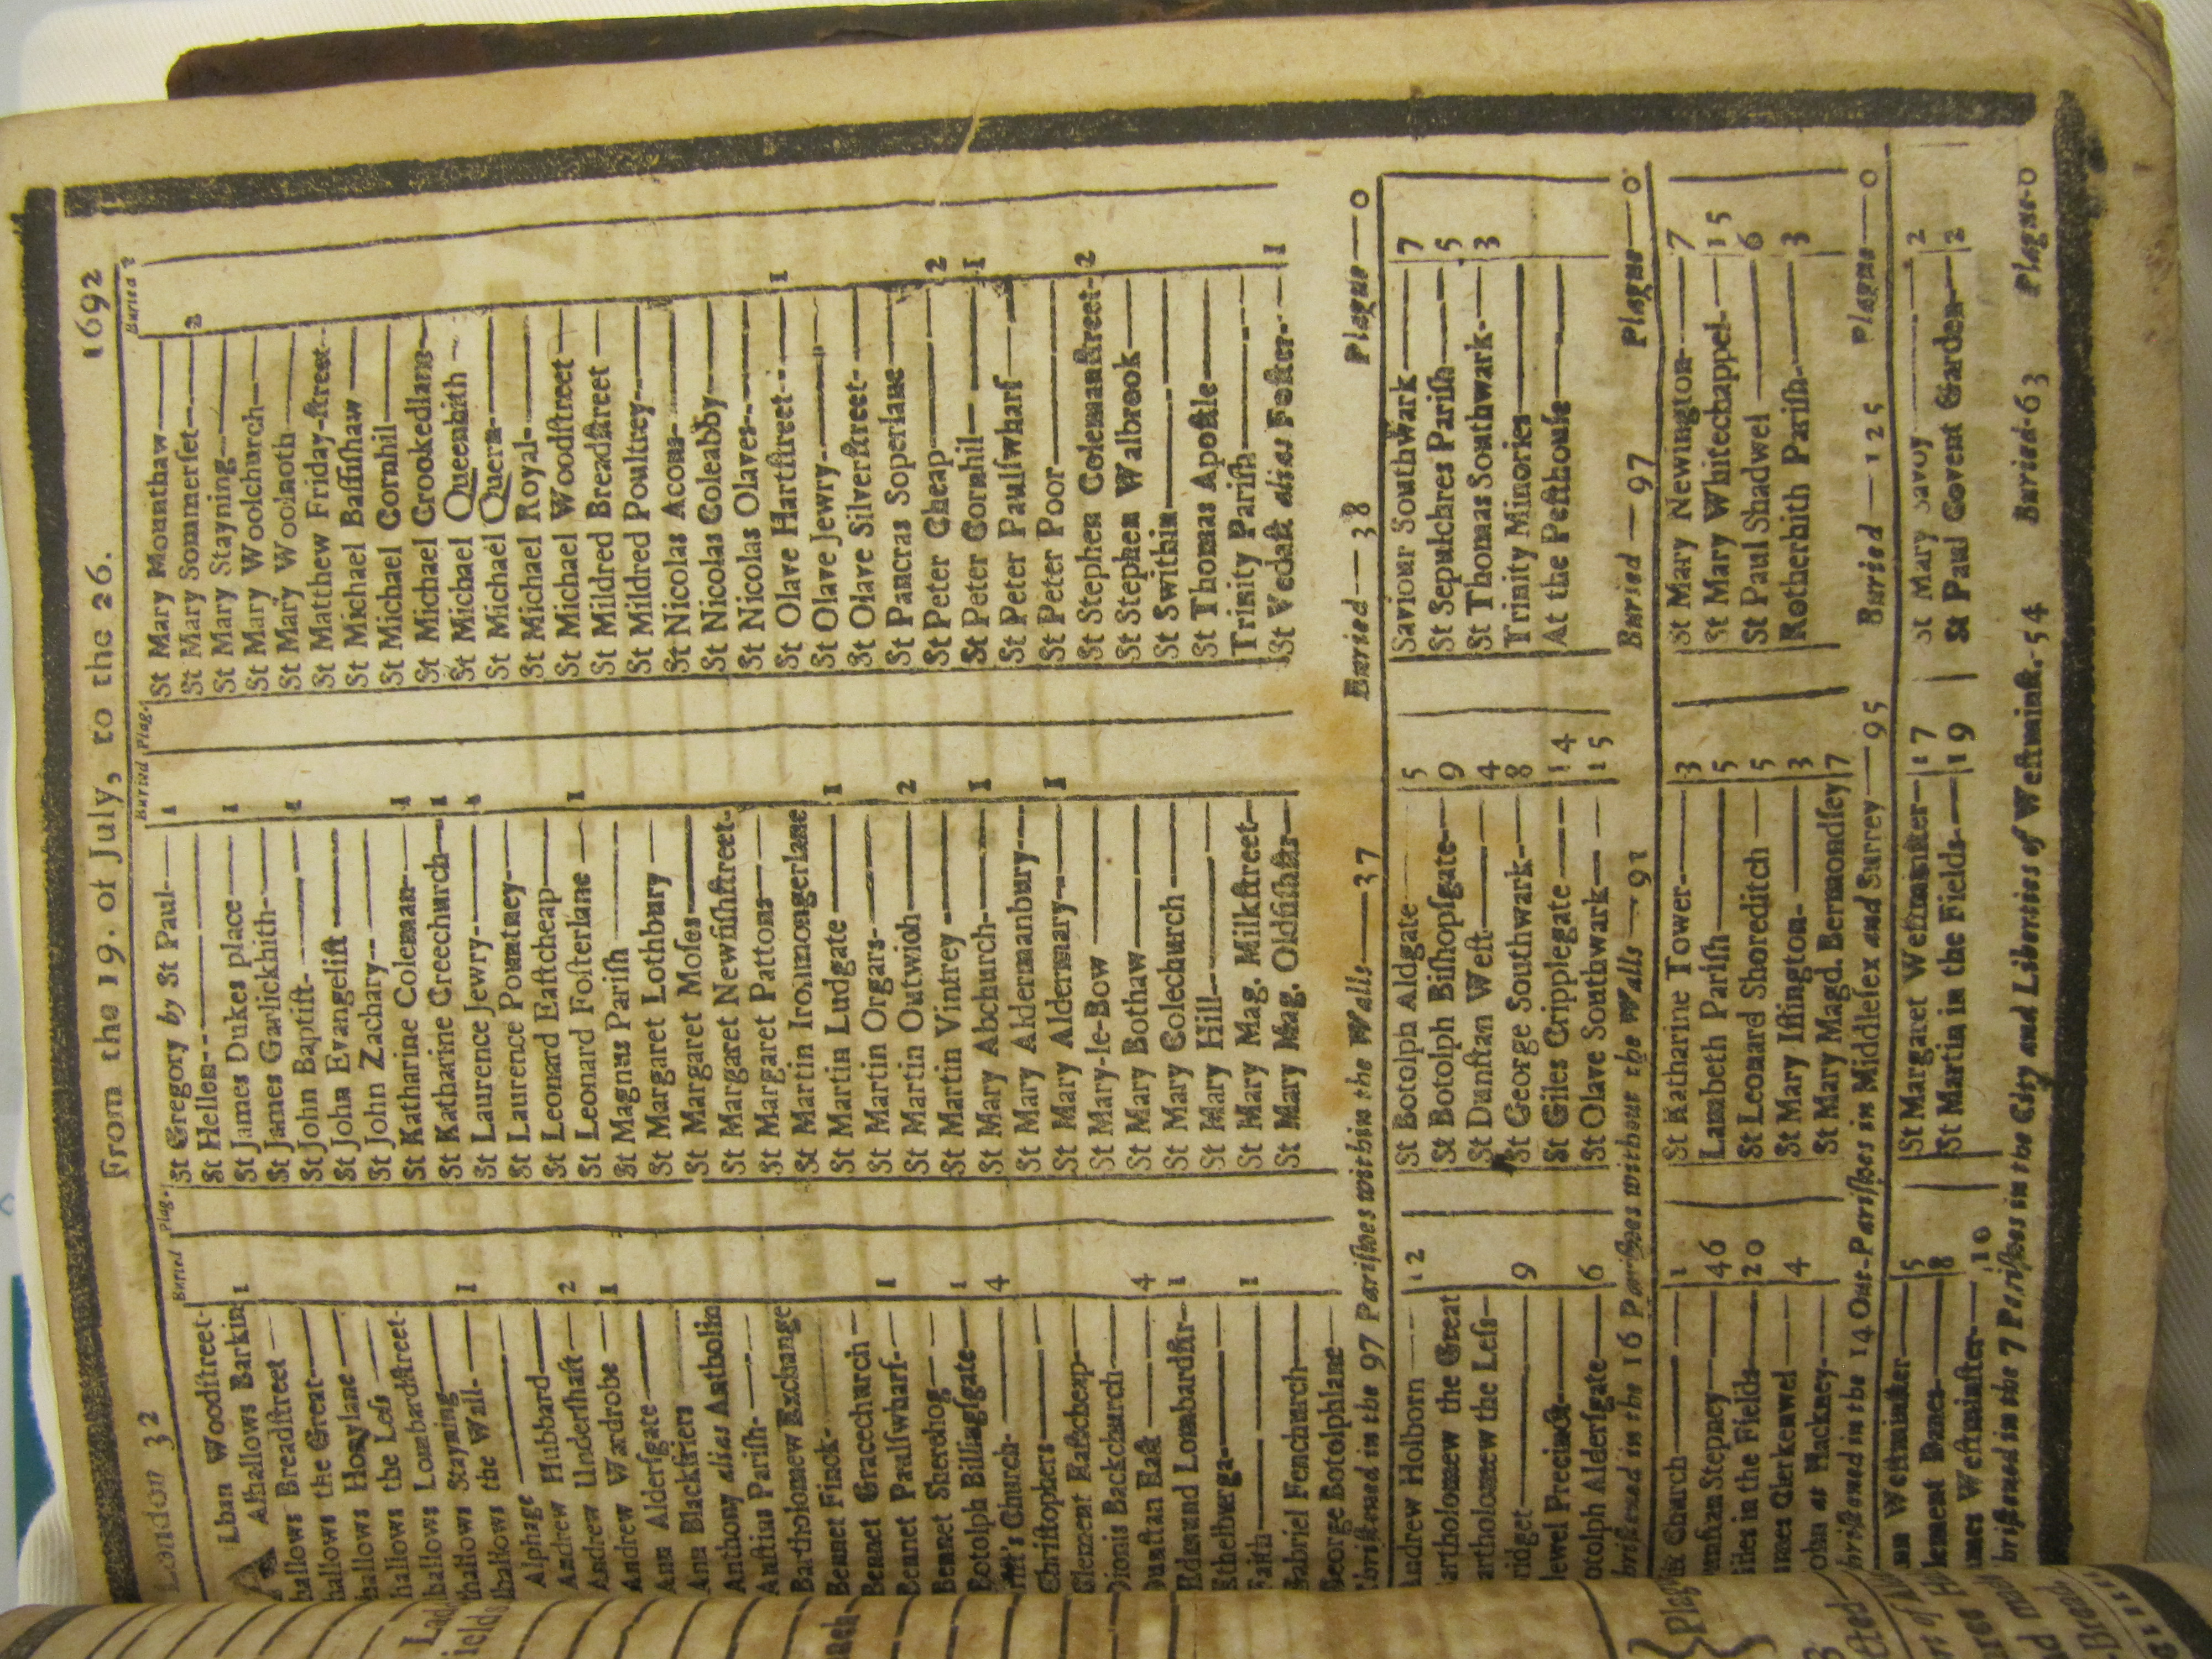 London 32 From the 19. of July, to the 26. 1692
Buried Plag. Buried Plag. Buried
A Lban Woodſtreet-
Alhallows Barkin 1
hallows Breadſtreet
hallows the Great
hallows Honylane
hallows the Leſs
hallows Lombardſtreet-
hallows Stayning
hallows the Wall- 1
Alphage
Andrew Hubbard
Andrew Underſhaft 2
Andrew Wardrobe 1
Ann Alderſgate
Ann Blackfriers
Anthony alias Antholin
Auſtius Pariſh-
Bartholomew Exchange
Bennet Finck-
Bennet Gracechurch
Bennet Paulſwharf- 1
Bennet Sherehog
Botolph Billingſgate 1
Church- 4
Chriſtophers
Clement Eaſtcheap
Dionis Backchurch
Dunſtan Eaſt 4
Edmund Lombardſtr- 1
Ethelberga-
Faith 1
Gabriel Fenchurch
George Botolphlane
St Gregory by St Paul 1
St Hellen
St James Dukes place 1
St James Garlickhith-
St John Baptiſt- 1
St John Evangeliſt
St John Zachary
St Katharine Coleman 1
St Katharine Creechurch 1
St Laurence Jewry- 1
St Laurence Pountney
St Leonard Eaſtcheap
St Leonard Foſterlane 1
St Magnus Pariſh
St Margaret Lothbury
St Margaret Moſes
St Margaret Newfiſhſtreet-
St Margaret Pattons
St Martin Ironmongerlane
St Martin Ludgate 1
St Martin Orgars-
St Martin Outwich 2
St Martin Vintrey
St Mary Abchurch 1
St Mary Aldermanbury
St Mary Aldermary 1
St Mary-le-Bow
St Mary Bothaw
St Mary Colechurch
St Mary Hill
St Mary Mag. Milkſtreet
St Mary Mag. Oldfiſhſtr
St Mary Mounthaw
St Mary Sommerſet 2
St Mary Stayning
St Mary Woolchurch
St Mary Woolnoth
St Matthew Friday-ſtreet
St Michael Baſſiſhaw
St Michael Cornhil
St Michael Crookedlane
St Michael Queenhith
St Michael Quern-
St Michael Royal-
St Michael Woodſtreet
St Mildred Breadſtreet
St Mildred Poultrey
St Nicolas Acons-
St Nicolas Coleabby
St Nicolas Olaves
St Olave Hartſtreet 1
St Olave Jewry
St Olave Silverſtreet
St Pancras Soperlane
St Peter Cheap 2
St Peter Cornhil 1
St Peter Paulſwharf
St Peter Poor
St Stephen Colemanſtreet- 2
St Stephen Walbrook
St Swithin
St Thomas Apoſtle
Trinity Pariſh
St Vedaſt alias Foſter 1
briſtened in the 97 Pariſhes within the Walls 37 Buried 38 Plague 0
Andrew Holborn 12
artholomew the Great
artholomew the Leſs
ridget 9
ewel Precinct
otolph Alderſgate 6
St Botolph Aldgate 5
St Botolph Biſhopſgate 9
St Dunſtan Weſt 4
St George Southwark 8
St Giles Cripplegate 14
St Olave Southwark 15
Saviour Southwark 7
St Sepulchres Pariſh 5
St Thomas Southwark- 3
Trinity Minories
At the Peſthouſe
briſtened in the 16 Pariſhes without the Walls 91 Buried 97 Plague 0
Church 1
unſtan Stepney 46
iles in the Fields 20
ames Clerkenwel 4
ohn at Hackney
St Katharine Tower 3
Lambeth Pariſh 5
St Leonard Shoreditch 5
St Mary Iſlington 3
St Mary Magd. Bermondſey 7
St Mary Newington 7
St Mary Whitechappel 15
St Paul Shadwel 6
Rotherhith Pariſh 3
briſtened in the 14 Out-Pariſhes in Middleſex and Surrey 95 Buried 125 Plague 0
Weſtminſter 5
lement Danes 8
ames Weſtminſter 10
St Margaret Weſtminſter 17
St Martin in the Fields 19
St Mary Savoy 2
St Paul Covent Garden 2
briſtened in the 7 Pariſhes in the City and Liberties of Weſtminſt. 54 Buried 63 Plague 0